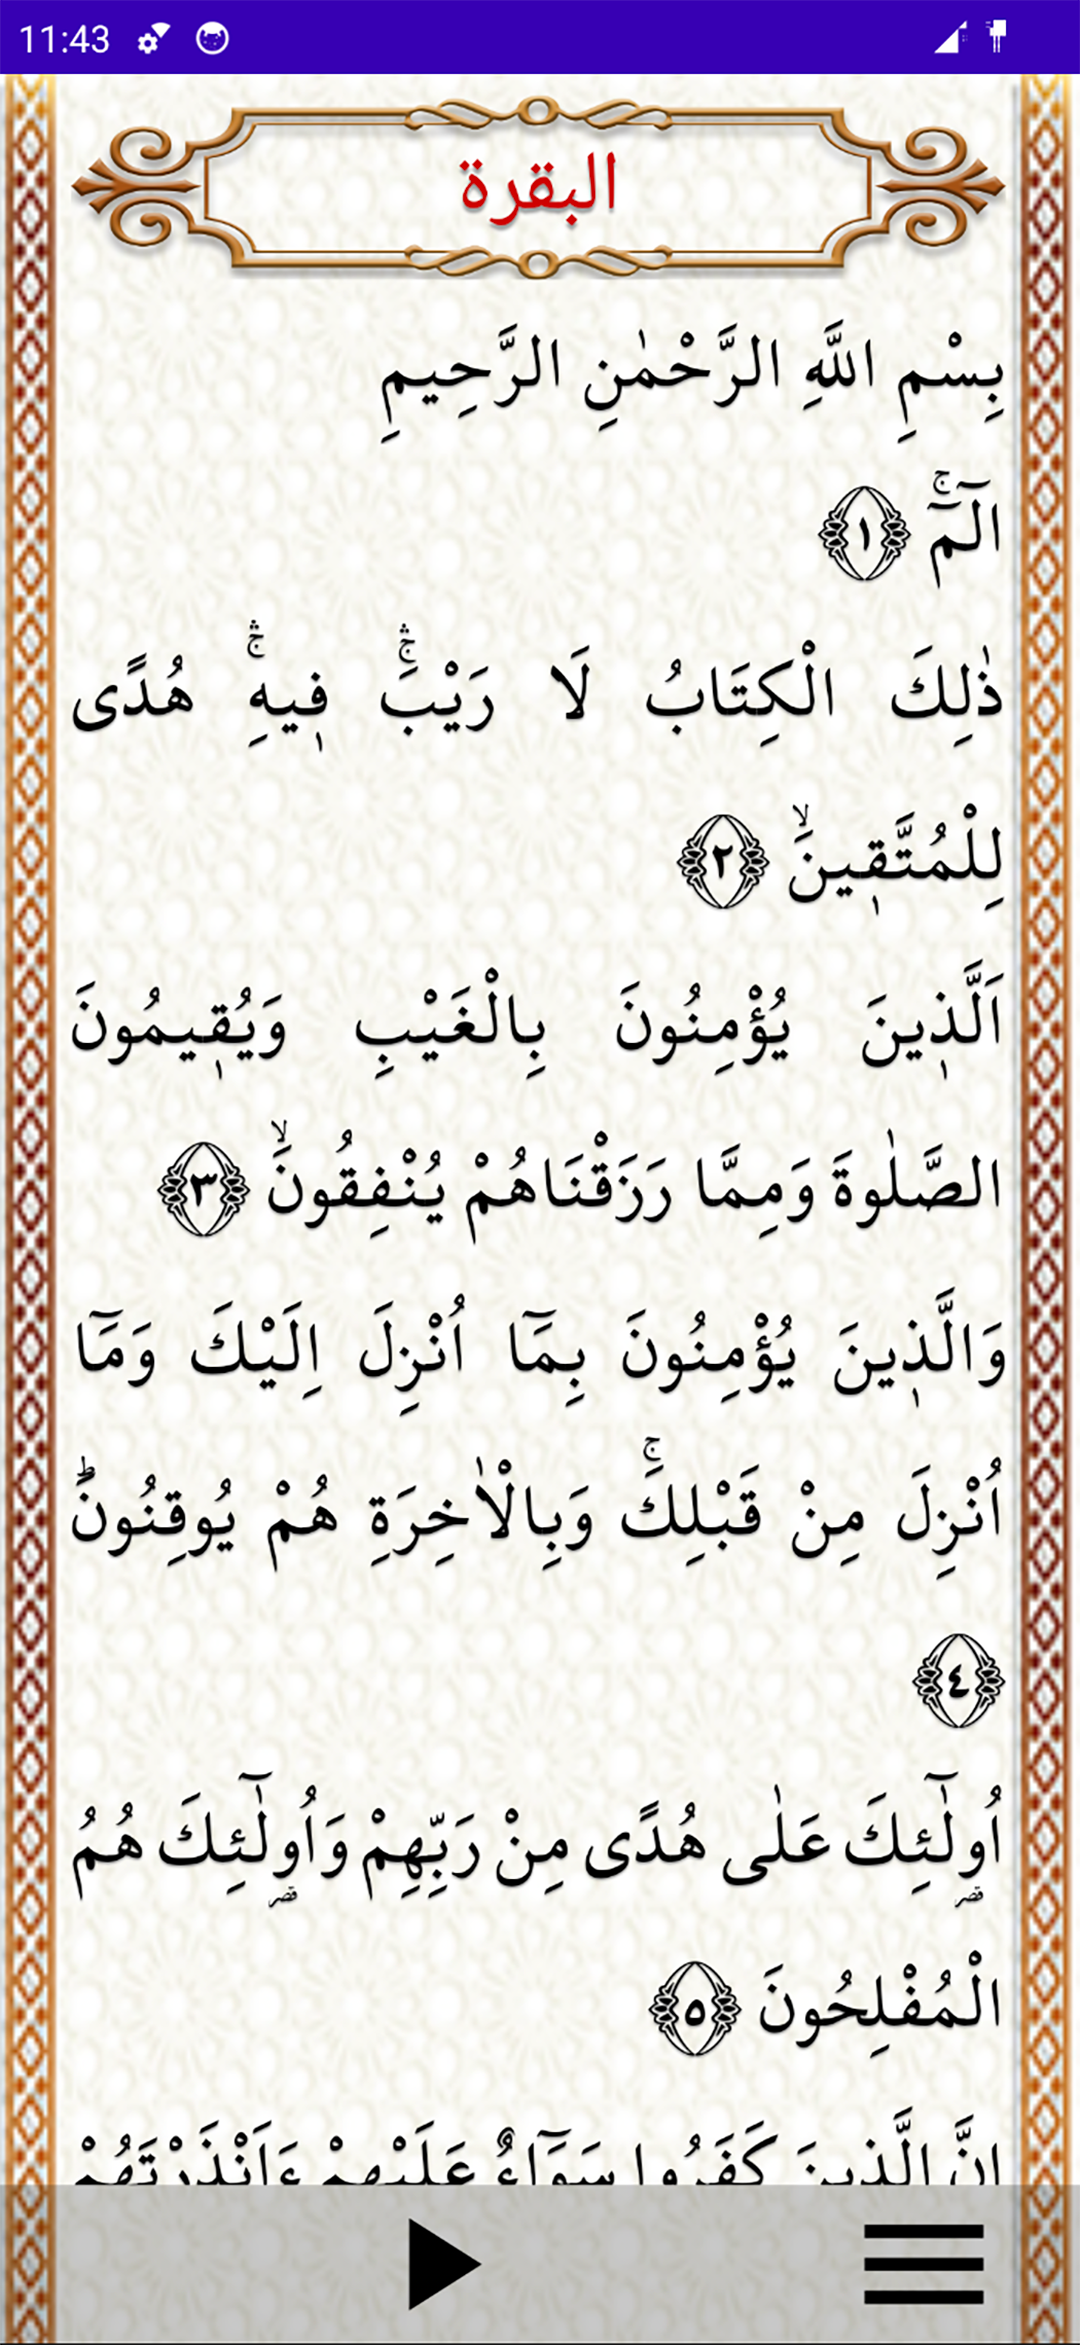 11:43
البقرة
بِسْمِ اللَّهِ الرَّحْمٰنِ الرَّحِيمِ
الٓمٓۚ ﴿١﴾
ذٰلِكَ الْكِتَابُ لَا رَيْبَۛ فٖيهِۛ هُدًى
لِلْمُتَّقٖينَۙ ﴿٢﴾
اَلَّذٖينَ يُؤْمِنُونَ بِالْغَيْبِ وَيُقٖيمُونَ
الصَّلٰوةَ وَمِمَّا رَزَقْنَاهُمْ يُنْفِقُونَۙ ﴿٣﴾
وَالَّذٖينَ يُؤْمِنُونَ بِمَٓا اُنْزِلَ اِلَيْكَ وَمَٓا
اُنْزِلَ مِنْ قَبْلِكَۚ وَبِالْاٰخِرَةِ هُمْ يُوقِنُونَؕ
﴿٤﴾
اُو۬لٰٓئِكَ عَلٰى هُدًى مِنْ رَبِّهِمْ وَاُو۬لٰٓئِكَ هُمُ
الْمُفْلِحُونَ ﴿٥﴾
اِنَّ الَّذٖينَ كَفَرُوا سَوَٓاءٌ عَلَيْهِمْ ءَاَنْذَرْتَهُمْ